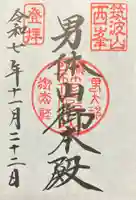 筑波山
西峯
登拝
男体山御本殿
令和七年十一月二十二日